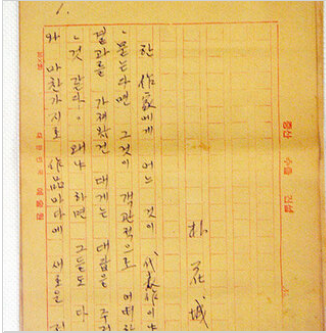 1.
증산 수출 건설
朴花城
한 作家에게 어느 것이 代表作이냐
묻는다면 그것이 객관적으로 어떠한
결과를 가져왔건 대개는 대답을 주저
것 같다. 왜냐 하면 그들도 다
와 마찬가지로 作品마다에 새로운
예술원